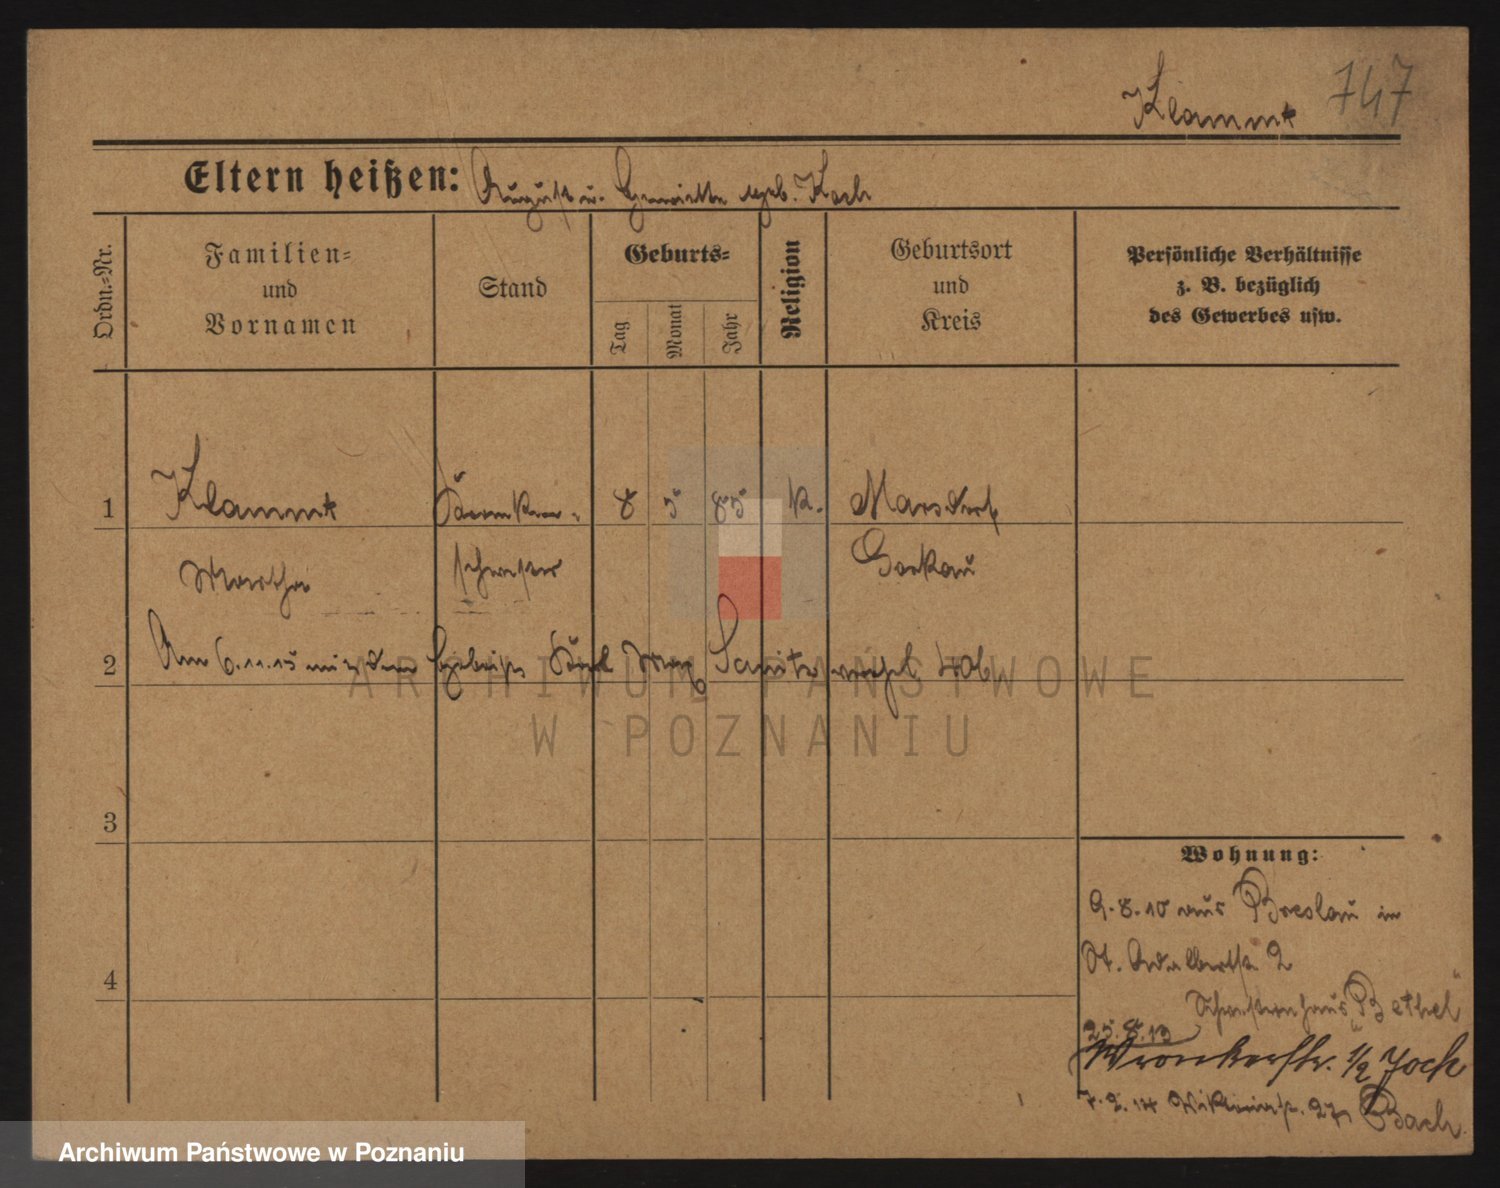 Klammt 747
Eltern heißen: August u. Henriette geb. Koch
Ordn.-Nr.
Familien-
und
Vornamen
Stand
Geburts-
Tag
Monat
Jahr
Religion
Geburtsort
und
Kreis
Persönliche Verhältnisse
z. B. bezüglich
des Gewerbes usw.
1 Klammt Kranken- 8 5 85 k. Marxdorf
Martha schwester
2 Am 6.11.15 mit dem
ARCHIWUM PAŃSTWOWE
W POZNANIU
3
4
Wohnung:
9.8.10 aus Breslau in
St. Adalbertstr. 2
Schwesternhaus „Bethel“
25.8.13
Wronkerstr. 1/2 Jock
7.2.14 27 Bach
Archiwum Państwowe w Poznaniu